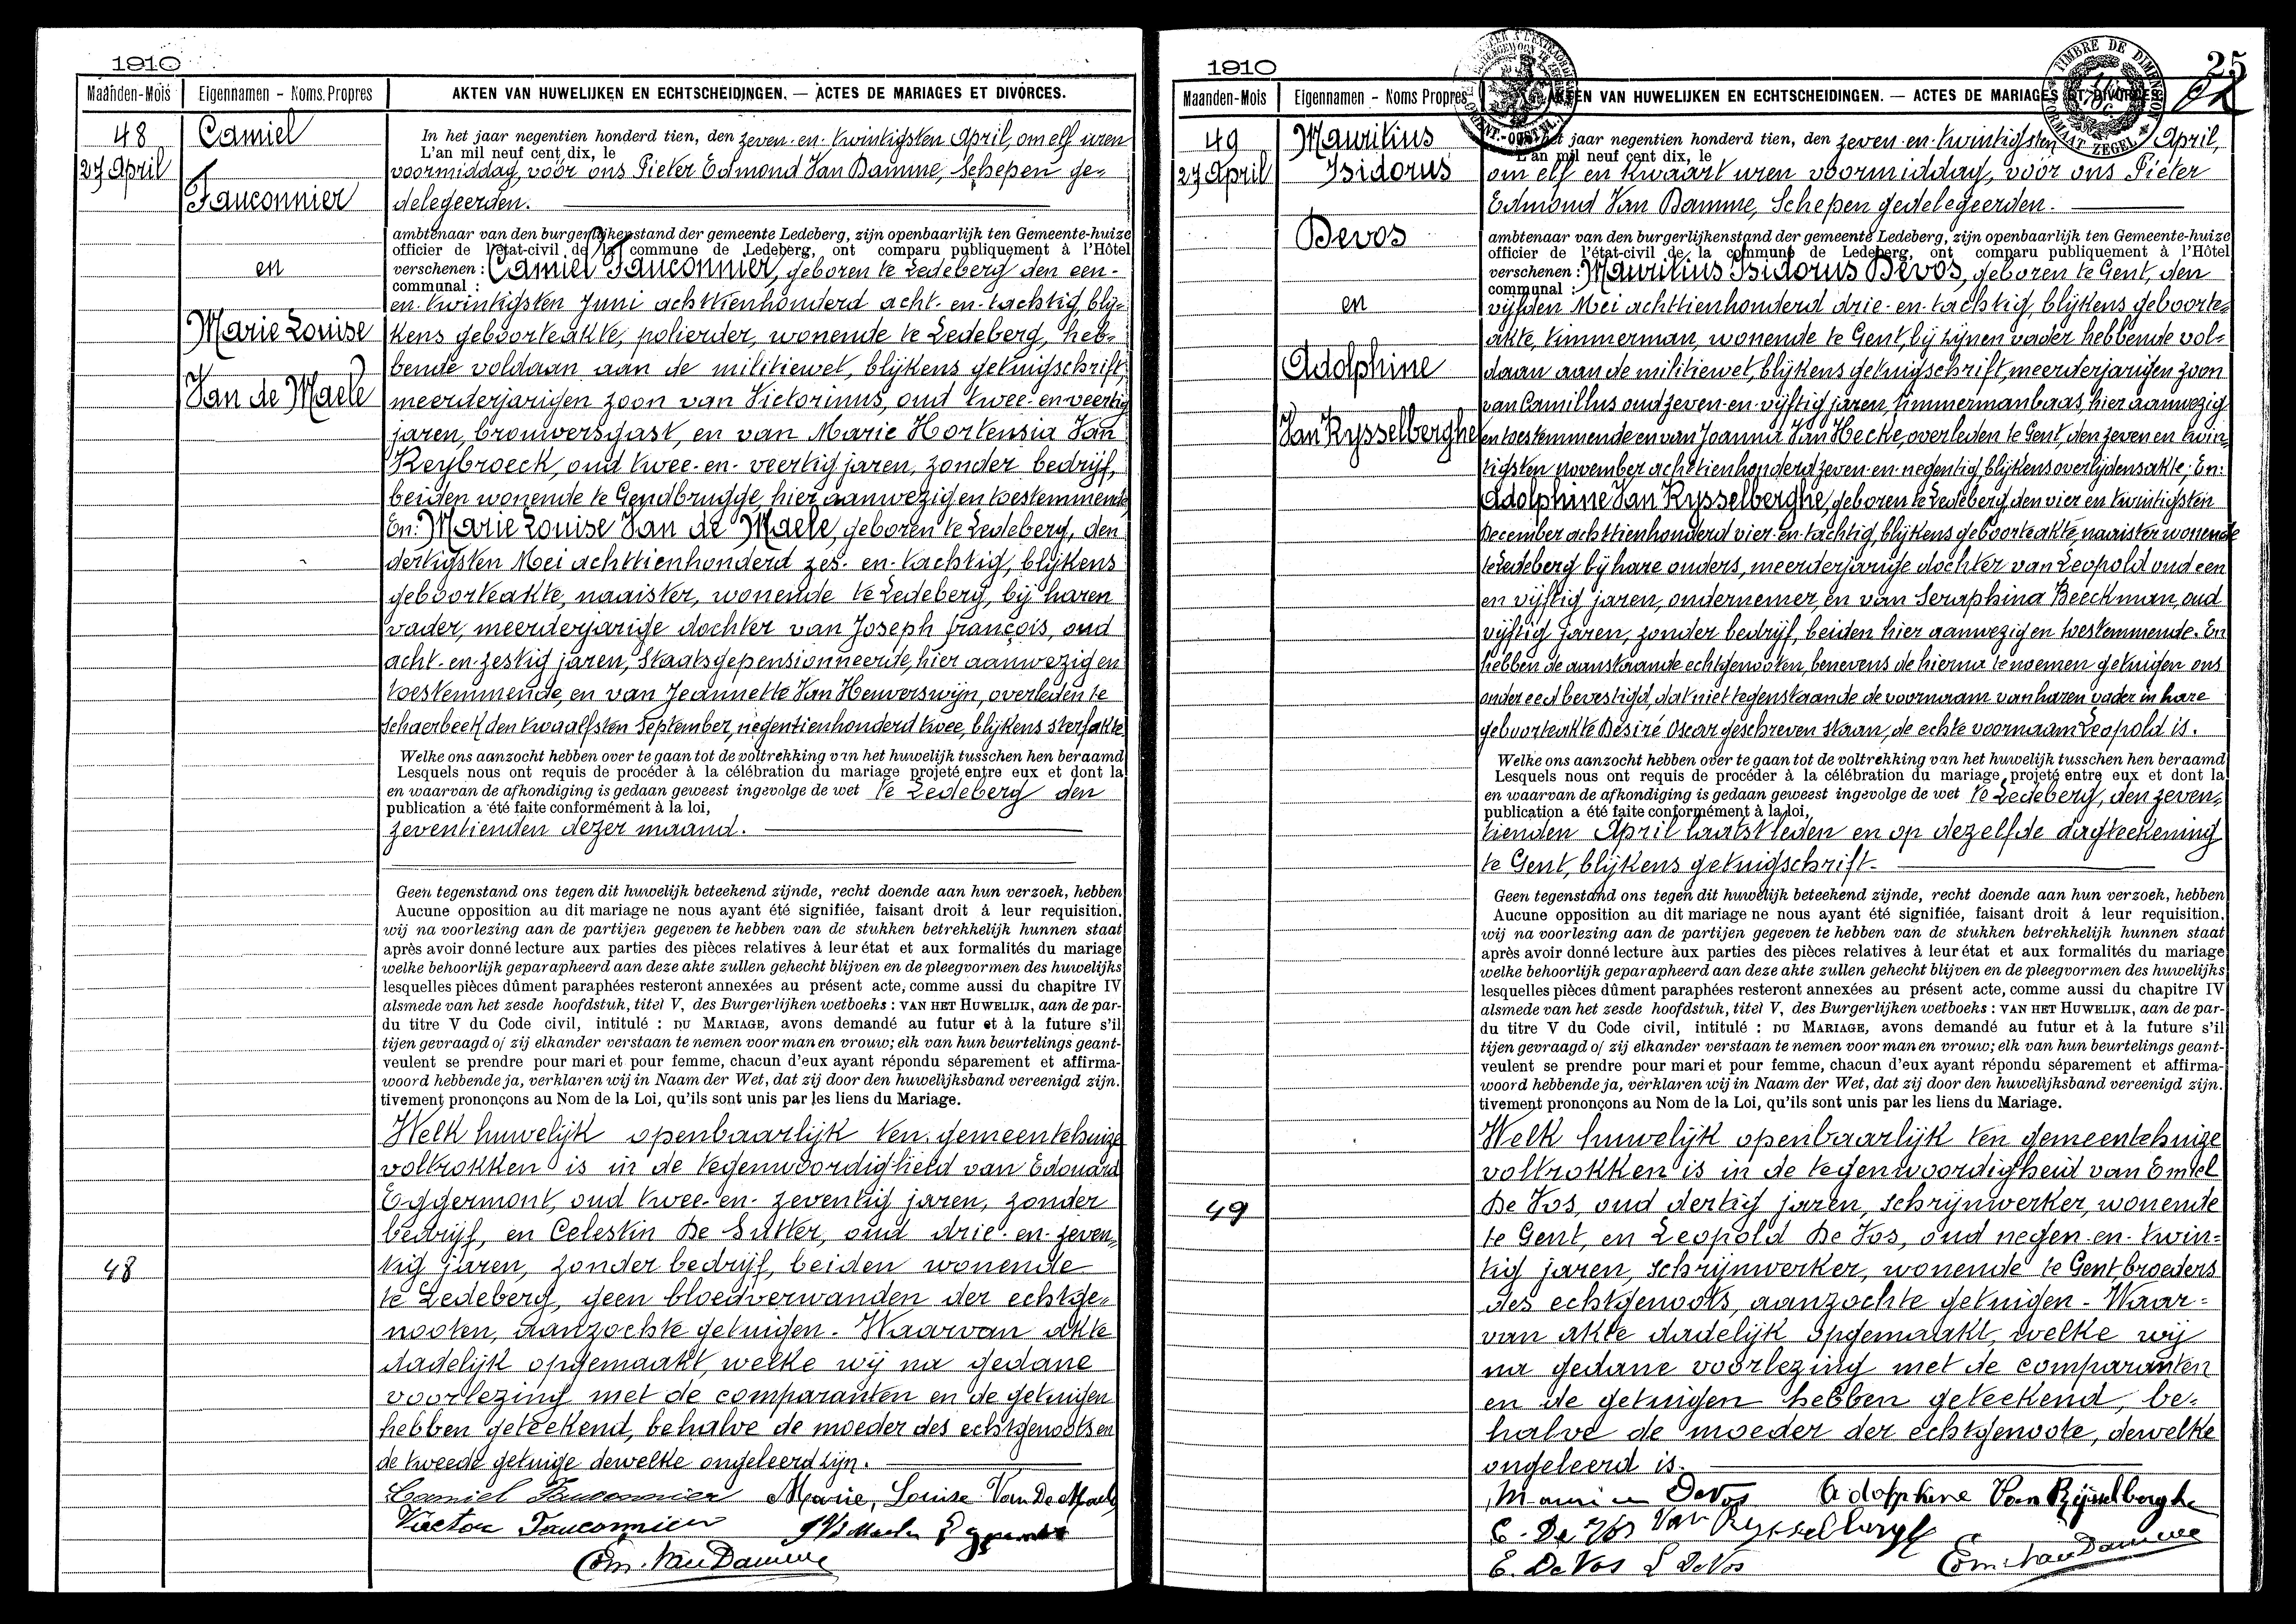 1910
Maanden-Mois Eigennamen - Noms. Propres AKTEN VAN HUWELIJKEN EN ECHTSCHEIDINGEN. — ACTES DE MARIAGES ET DIVORCES.
48
27 April
Camiel
Fauconnier
en
Marie Louise
Van de Maele
In het jaar negentien honderd tien, den zeven-en-twintigsten April, om elf uren
L'an mil neuf cent dix, le
voormiddag, vóór ons Pieter Edmond Van Damme, Schepen ge-
delegeerden.
ambtenaar van den burgerlijkenstand der gemeente Ledeberg, zijn openbaarlijk ten Gemeente-huize
officier de l'état-civil de la commune de Ledeberg, ont comparu publiquement à l'Hôtel
verschenen : Camiel Fauconnier, geboren te Ledeberg den een-
communal :
en-twintigsten Juni achttienhonderd acht-en-tachtig, blij-
kens geboorteakte, polierder, wonende te Ledeberg, heb-
bende voldaan aan de militiewet, blijkens getuigschrift,
meerderjarigen zoon van Victorinus, oud twee-en-veertig
jaren, brouwersgast, en van Marie Hortensia Van
Reybroeck, oud twee-en-veertig jaren, zonder bedrijf,
beiden wonende te Gendbrugge, hier aanwezig en toestemmende
En: Marie Louise Van de Maele, geboren te Ledeberg, den
dertigsten Mei achttienhonderd zes-en-tachtig, blijkens
geboorteakte, naaister, wonende te Ledeberg, bij haren
vader, meerderjarige dochter van Joseph françois, oud
acht-en-zestig jaren, Staatsgepensionneerde, hier aanwezig en
toestemmende, en van Jeannette Van Heuverswijn, overleden te
Schaerbeek den twaalfsten September, negentienhonderd twee, blijkens sterfakte
Welke ons aanzocht hebben over te gaan tot de voltrekking van het huwelijk tusschen hen beraamd
Lesquels nous ont requis de procéder à la célébration du mariage projeté entre eux et dont la
en waarvan de afkondiging is gedaan geweest ingevolge de wet te Ledeberg den
publication a été faite conformément à la loi,
zeventienden dezer maand.
Geen tegenstand ons tegen dit huwelijk beteekend zijnde, recht doende aan hun verzoek, hebben
Aucune opposition au dit mariage ne nous ayant été signifiée, faisant droit à leur requisition,
wij na voorlezing aan de partijen gegeven te hebben van de stukken betrekkelijk hunnen staat
après avoir donné lecture aux parties des pièces relatives à leur état et aux formalités du mariage
welke behoorlijk geparapheerd aan deze akte zullen gehecht blijven en de pleegvormen des huwelijks
lesquelles pièces dûment paraphées resteront annexées au présent acte, comme aussi du chapitre IV
alsmede van het zesde hoofdstuk, titel V, des Burgerlijken wetboeks : VAN HET HUWELIJK, aan de par-
du titre V du Code civil, intitulé : DU MARIAGE, avons demandé au futur et à la future s'il
tijen gevraagd of zij elkander verstaan te nemen voor man en vrouw; elk van hun beurtelings geant-
veulent se prendre pour mari et pour femme, chacun d'eux ayant répondu séparement et affirma-
woord hebbende ja, verklaren wij in Naam der Wet, dat zij door den huwelijksband vereenigd zijn.
tivement prononçons au Nom de la Loi, qu'ils sont unis par les liens du Mariage.
Welk huwelijk openbaarlijk ten gemeentehuize
voltrokken is in de tegenwoordigheid van Edouard
Eggermont, oud twee-en-zeventig jaren, zonder
bedrijf, en Celestin De Sutter, oud drie-en-zeven-
tig jaren, zonder bedrijf, beiden wonende
48
te Ledeberg, geen bloedverwanden der echtge-
nooten, aanzochte getuigen - Waarvan akte
dadelijk opgemaakt, welke wij na gedane
voorlezing met de comparanten en de getuigen
hebben geteekend, behalve de moeder des echtgenoots en
de tweede getuige dewelke ongeleerd zijn.
Camiel Fauconnier Marie, Louise Van De Maele
Victor Fauconnier
Edm. Van Damme
1910
25
Maanden-Mois Eigennamen - Noms Propres AKTEN VAN HUWELIJKEN EN ECHTSCHEIDINGEN. — ACTES DE MARIAGES ET DIVORCES
TIMBRE DE DIMENSION
FORMAAT ZEGEL
49
27 April
Mauritius
Isidorus
Devos
en
Adolphine
Van Rysselberghe
In het jaar negentien honderd tien, den zeven-en-twintigsten April,
L'an mil neuf cent dix, le
om elf en kwaart uren voormiddag, vóór ons Pieter
Edmond Van Damme, Schepen gedelegeerden.
ambtenaar van den burgerlijkenstand der gemeente Ledeberg, zijn openbaarlijk ten Gemeente-huize
officier de l'état-civil de la commune de Ledeberg, ont comparu publiquement à l'Hôtel
verschenen : Mauritius Isidorus Devos, geboren te Gent, den
communal :
vijfden Mei achttienhonderd drie-en-tachtig, blijkens geboorte-
akte, timmerman, wonende te Gent, bij zijnen vader hebbende vol-
daan aan de militiewet, blijkens getuigschrift, meerderjarigen zoon
van Camillus oud zeven-en-vijftig jaren, timmermanbaas, hier aanwezig
en toestemmende en van Joanna Van Hecke, overleden te Gent, den zeven en twin-
tigsten november achttienhonderd zeven-en-negentig, blijkens overlijdensakte; En:
Adolphine Van Rysselberghe, geboren te Ledeberg, den vier en twintigsten
December achttienhonderd vier-en-tachtig, blijkens geboorteakte, naaister wonende
te Ledeberg bij hare ouders, meerderjarige dochter van Leopold oud een
en vijftig jaren, ondernemer, en van Seraphina Beeckman, oud
vijftig jaren, zonder bedrijf, beiden hier aanwezig en toestemmende. En
hebben de aanstaande echtgenooten, benevens de hierna te noemen getuigen ons
onder eed bevestigd, dat niet tegenstaande de voornaam van haren vader in hare
geboorteakte Désiré Oscar geschreven staan, de echte voornaam Leopold is.
Welke ons aanzocht hebben over te gaan tot de voltrekking van het huwelijk tusschen hen beraamd
Lesquels nous ont requis de procéder à la célébration du mariage projeté entre eux et dont la
en waarvan de afkondiging is gedaan geweest ingevolge de wet te Ledeberg, den zeven-
publication a été faite conformément à la loi,
tienden April laatstleden en op dezelfde dagteekening
te Gent, blijkens getuigschrift.
Geen tegenstand ons tegen dit huwelijk beteekend zijnde, recht doende aan hun verzoek, hebben
Aucune opposition au dit mariage ne nous ayant été signifiée, faisant droit à leur requisition,
wij na voorlezing aan de partijen gegeven te hebben van de stukken betrekkelijk hunnen staat
après avoir donné lecture aux parties des pièces relatives à leur état et aux formalités du mariage
welke behoorlijk geparapheerd aan deze akte zullen gehecht blijven en de pleegvormen des huwelijks
lesquelles pièces dûment paraphées resteront annexées au présent acte, comme aussi du chapitre IV
alsmede van het zesde hoofdstuk, titel V, des Burgerlijken wetboeks : VAN HET HUWELIJK, aan de par-
du titre V du Code civil, intitulé : DU MARIAGE, avons demandé au futur et à la future s'il
tijen gevraagd of zij elkander verstaan te nemen voor man en vrouw; elk van hun beurtelings geant-
veulent se prendre pour mari et pour femme, chacun d'eux ayant répondu séparement et affirma-
woord hebbende ja, verklaren wij in Naam der Wet, dat zij door den huwelijksband vereenigd zijn.
tivement prononçons au Nom de la Loi, qu'ils sont unis par les liens du Mariage.
Welk huwelijk openbaarlijk ten gemeentehuize
voltrokken is in de tegenwoordigheid van Emiel
De Vos, oud dertig jaren, schrijnwerker, wonende
49
te Gent, en Leopold De Vos, oud negen-en-twin-
tig jaren, schrijnwerker, wonende te Gent broeders
des echtgenoots, aanzochte getuigen - Waar-
van akte dadelijk opgemaakt, welke wij
na gedane voorlezing met de comparanten
en de getuigen hebben geteekend, be-
halve de moeder der echtgenoote, dewelke
ongeleerd is.
Maurice DeVos Adolphine Van Rijsselberghe
C. De Vos Van Rysselberghe
E. De Vos L DeVos Edm. Van Damme